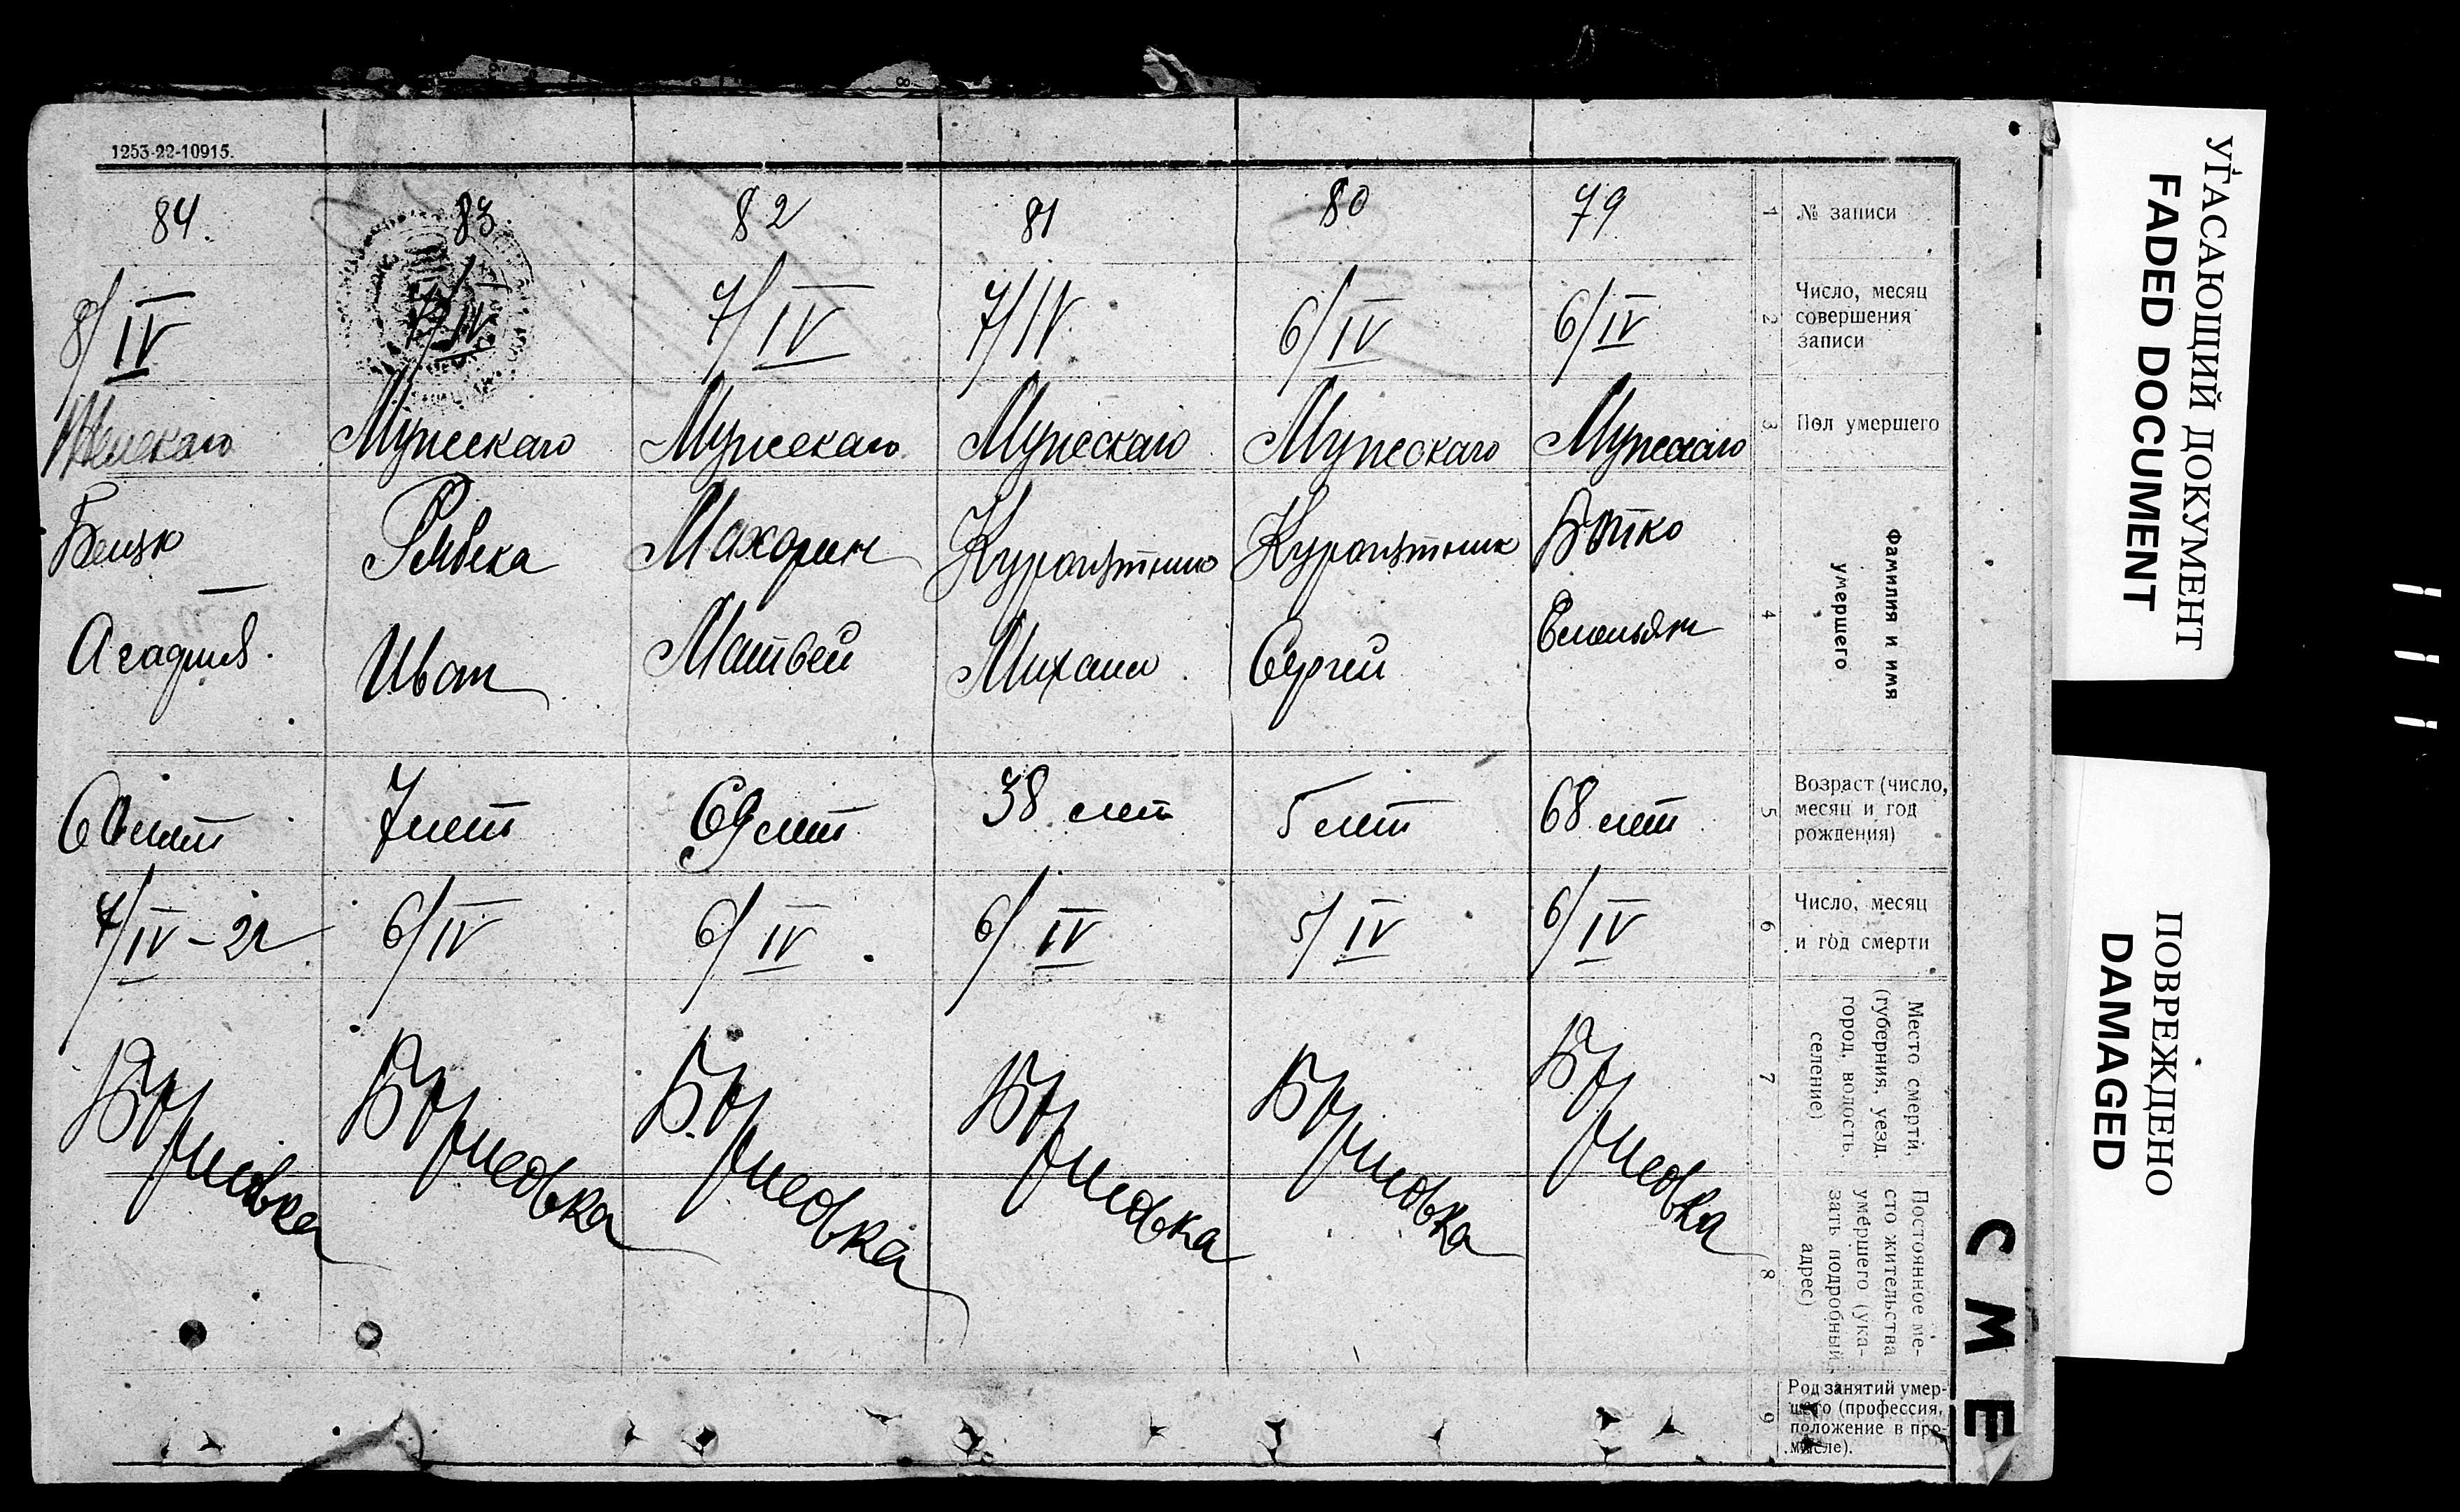 1253-22-10915.
84.
83
82
81
80
79
1
№ записи
8/IV
7/IV
7/IV
7/IV
6/IV
6/IV
2
Число, месяц
совершения
записи
Женскаго
Мужескаго
Мужескаго
Мужескаго
Мужескаго
Мужескаго
3
Пол умершего
Махорин
Куропятник
Куропятник
Иван
Матвей
Михаил
Сергей
Емельян
4
Фамилия и имя
умершего
60 лет
7 лет
69 лет
38 лет
5 лет
68 лет
5
Возраст (число,
месяц и год
рождения)
7/IV-22
6/IV
6/IV
6/IV
5/IV
6/IV
6
Число, месяц
и год смерти
7
Место смерти,
(губерния, уезд,
город, волость,
селение)
8
Постоянное ме-
сто жительства
умершего (ука-
зать подробный
адрес)
9
Род занятий умер-
шего (профессия,
положение в про-
мысле).
С М Е
УГАСАЮЩИЙ ДОКУМЕНТ
FADED DOCUMENT
ПОВРЕЖДЕНО
DAMAGED